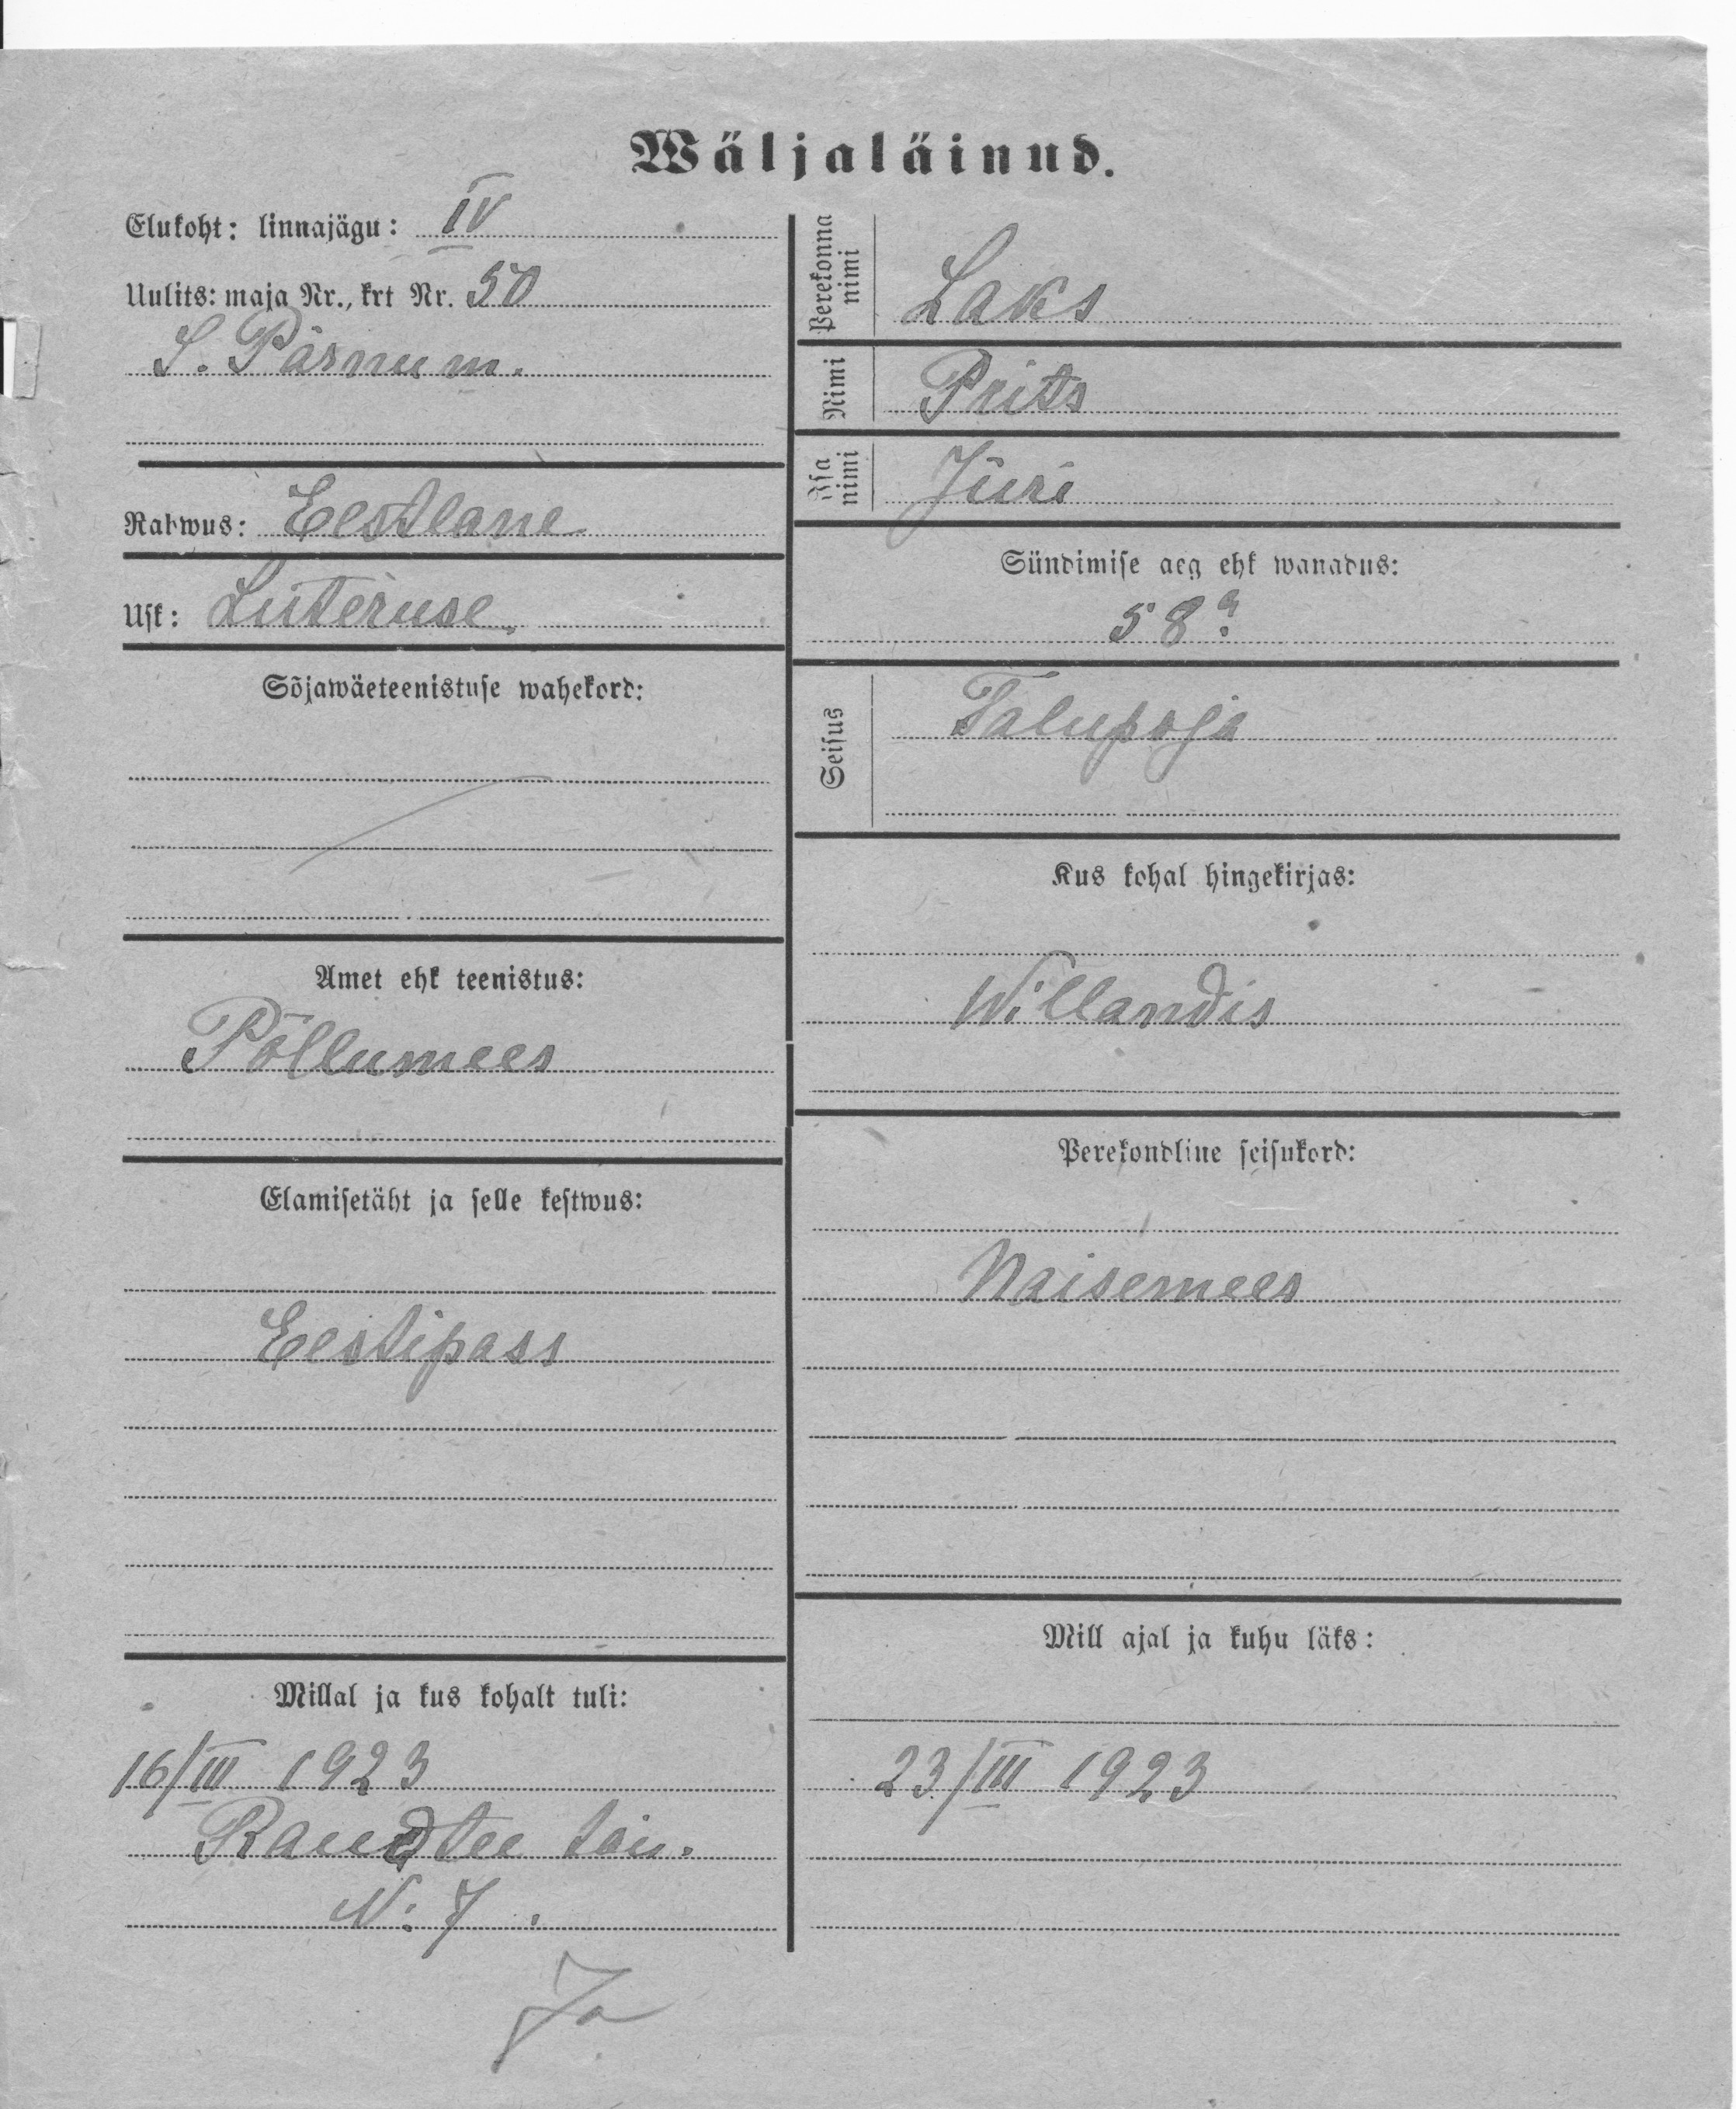 Wäljaläinud.
Elukoht: linnajägu: IV
Uulits: maja Nr., krt Nr. 50
S. Pärnu m.
Rahwus: Eestlane
Usk: Luteruse.
Sõjawäeteenistuse wahekord:
Amet ehk teenistus:
Põllumees
Elamisetäht ja selle kestwus:
Eestipass
Millal ja kus kohalt tuli:
16/III 1923
Raudtee tän.
N: 7.
Perekonna
nimi
Laks
Nimi
Prits
Isa
nimi
Jüri
Sündimise aeg ehk wanadus:
58 a.
Seisus
Talupoja
Kus kohal hingekirjas:
Willandis
Perekondline seisukord:
Naisemees
Mill ajal ja kuhu läks:
23/III 1923